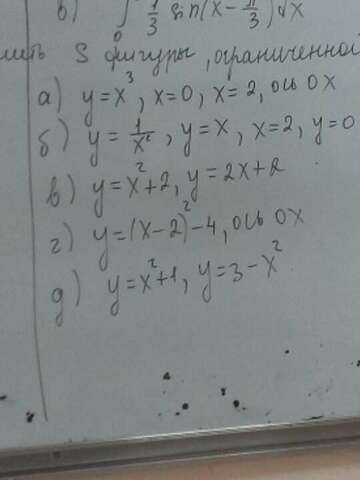 в) ∫₀ 1/3 sin(x - π/3) dx
S фигуры, ограниченной
а) y = x³, x = 0, x = 2, ось OX
б) y = 1/x², y = x, x = 2, y = 0
в) y = x² + 2, y = 2x + 2
г) y = (x - 2)² - 4, ось OX
д) y = x² + 1, y = 3 - x²